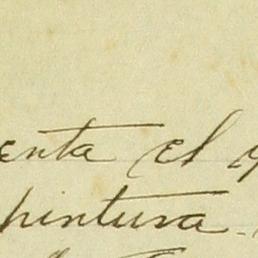 enta el
pintura.